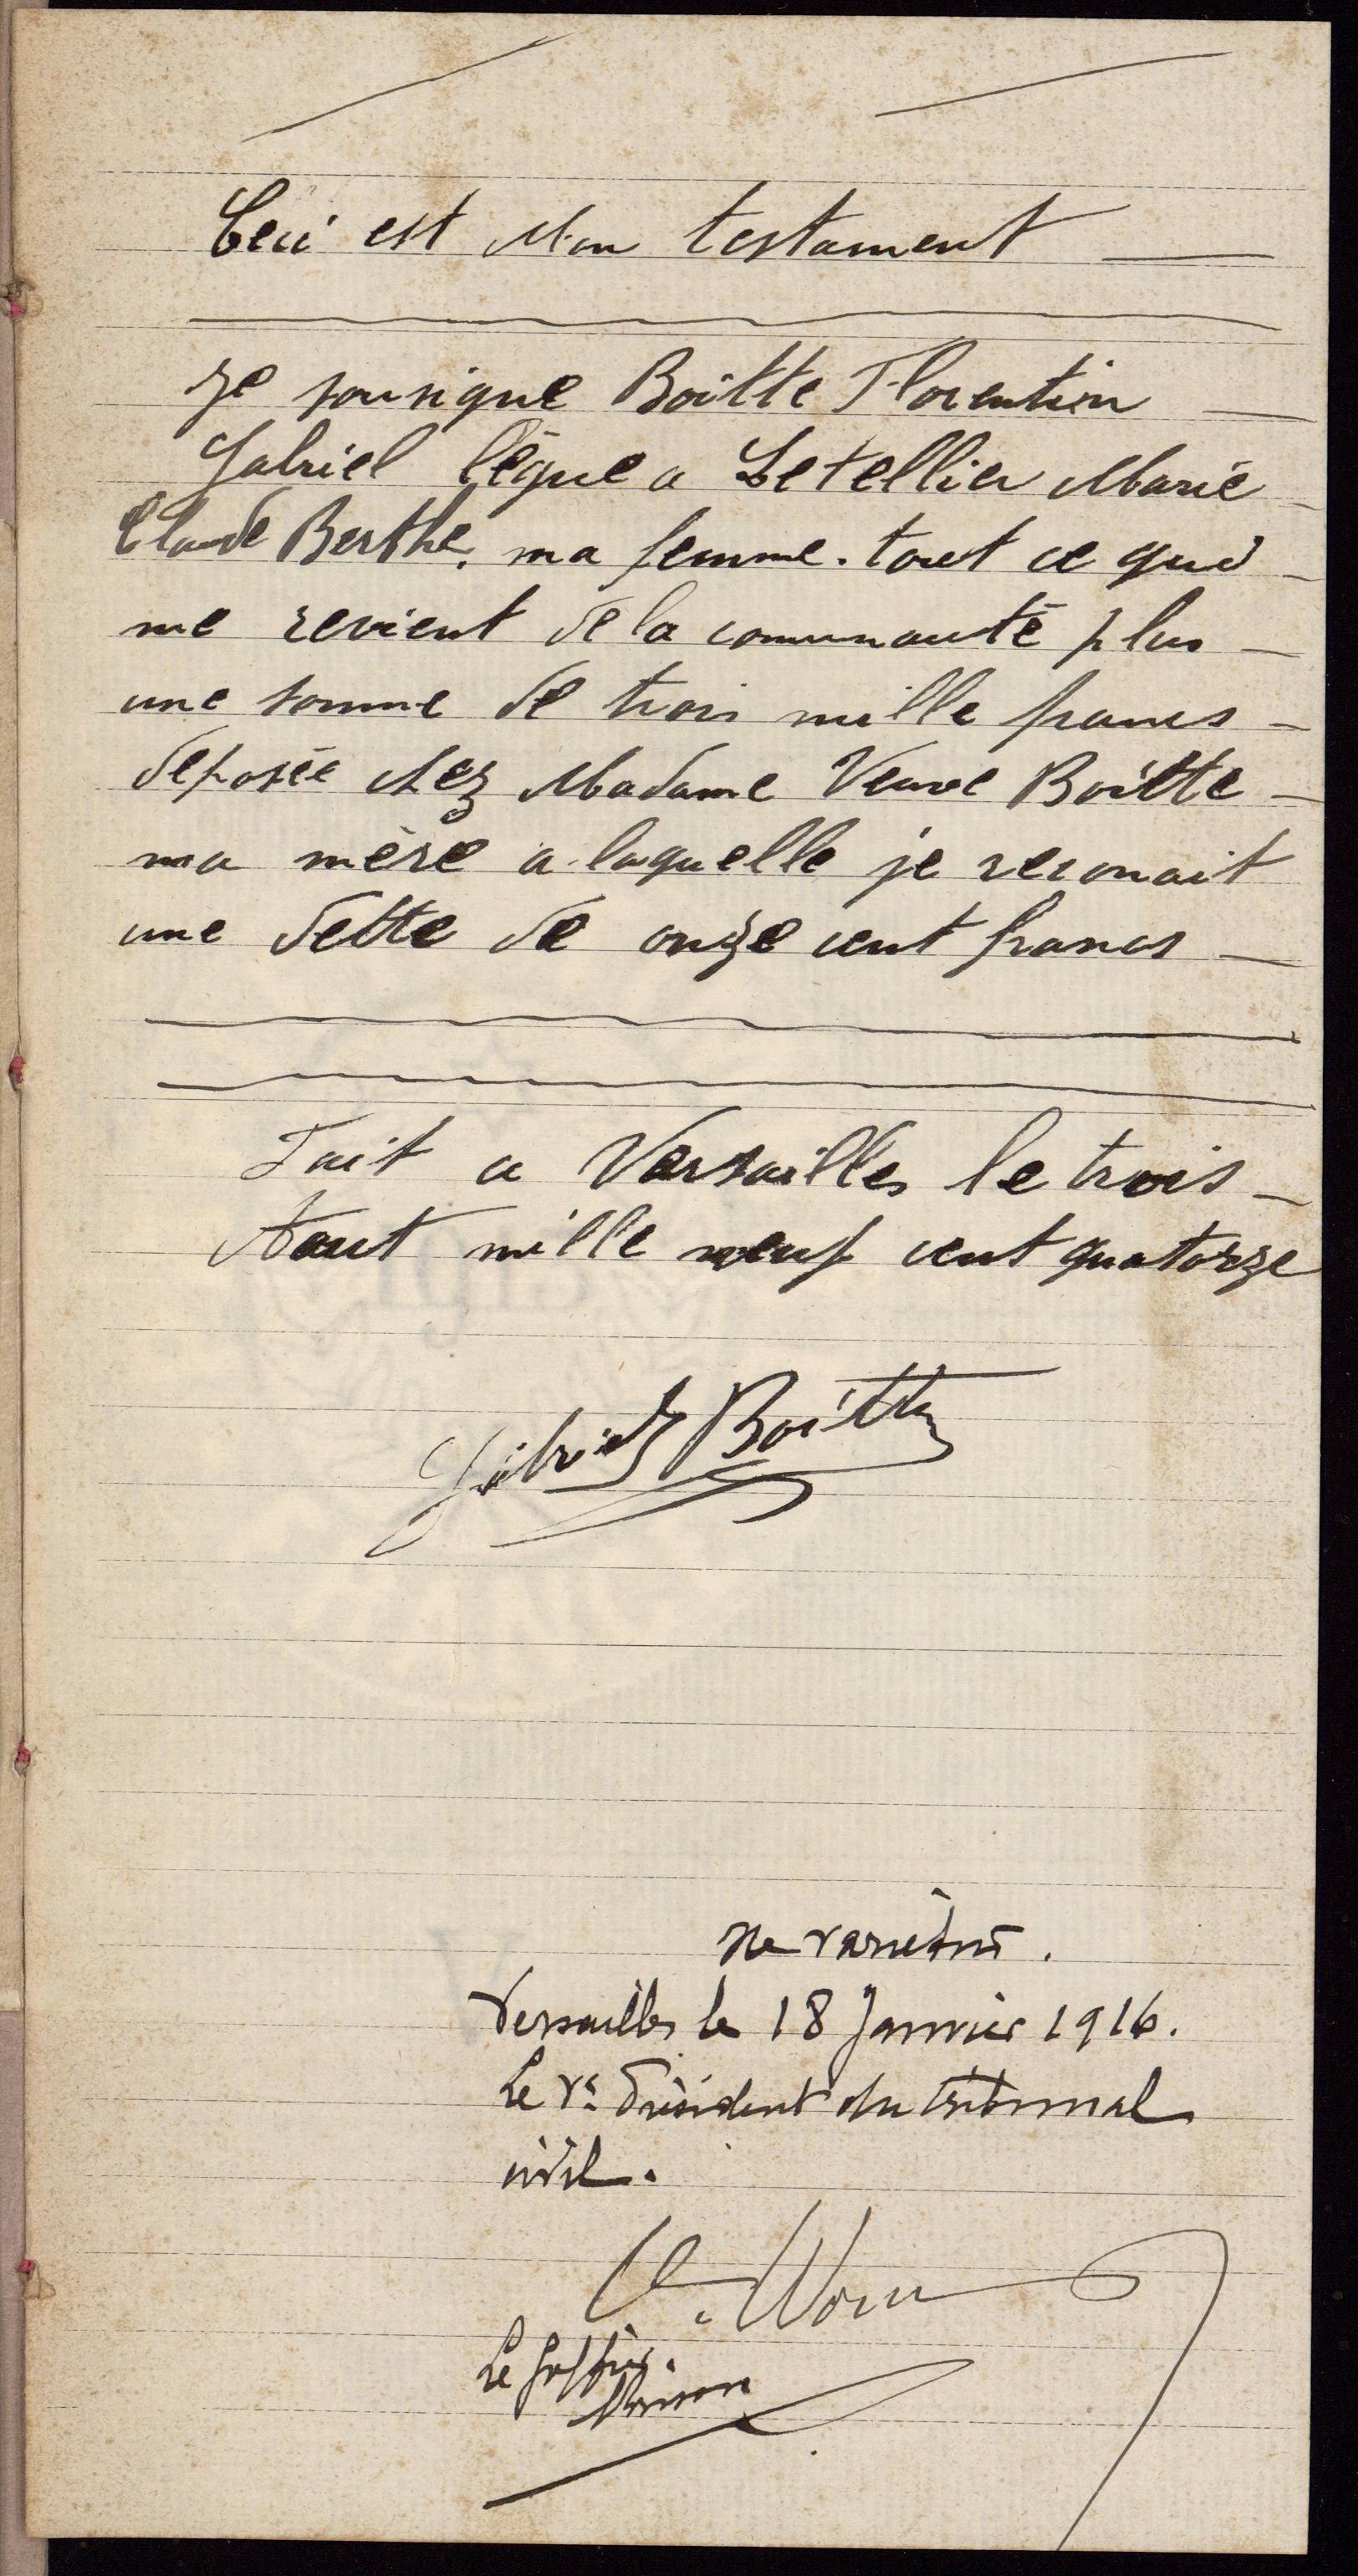 Ceci est Mon testament
Je sousigne Boitte Florentin
Gabriel lègue a Letellier Marie
Claude Berthe, ma femme. tout ce qui
me revient de la comunauté plus
une somme de trois mille francs
deposée chez Madame Veuve Boitte
ma mère a laquelle je reconait
une dette de onze cent francs
Fait a Versailles le trois
Aout mille neuf cent quatorze
Gabriel Boitte
Ne varietur.
Versailles le 18 Janvier 1916.
Le Vs. Président du tribunal
civil.
Le Greffier.